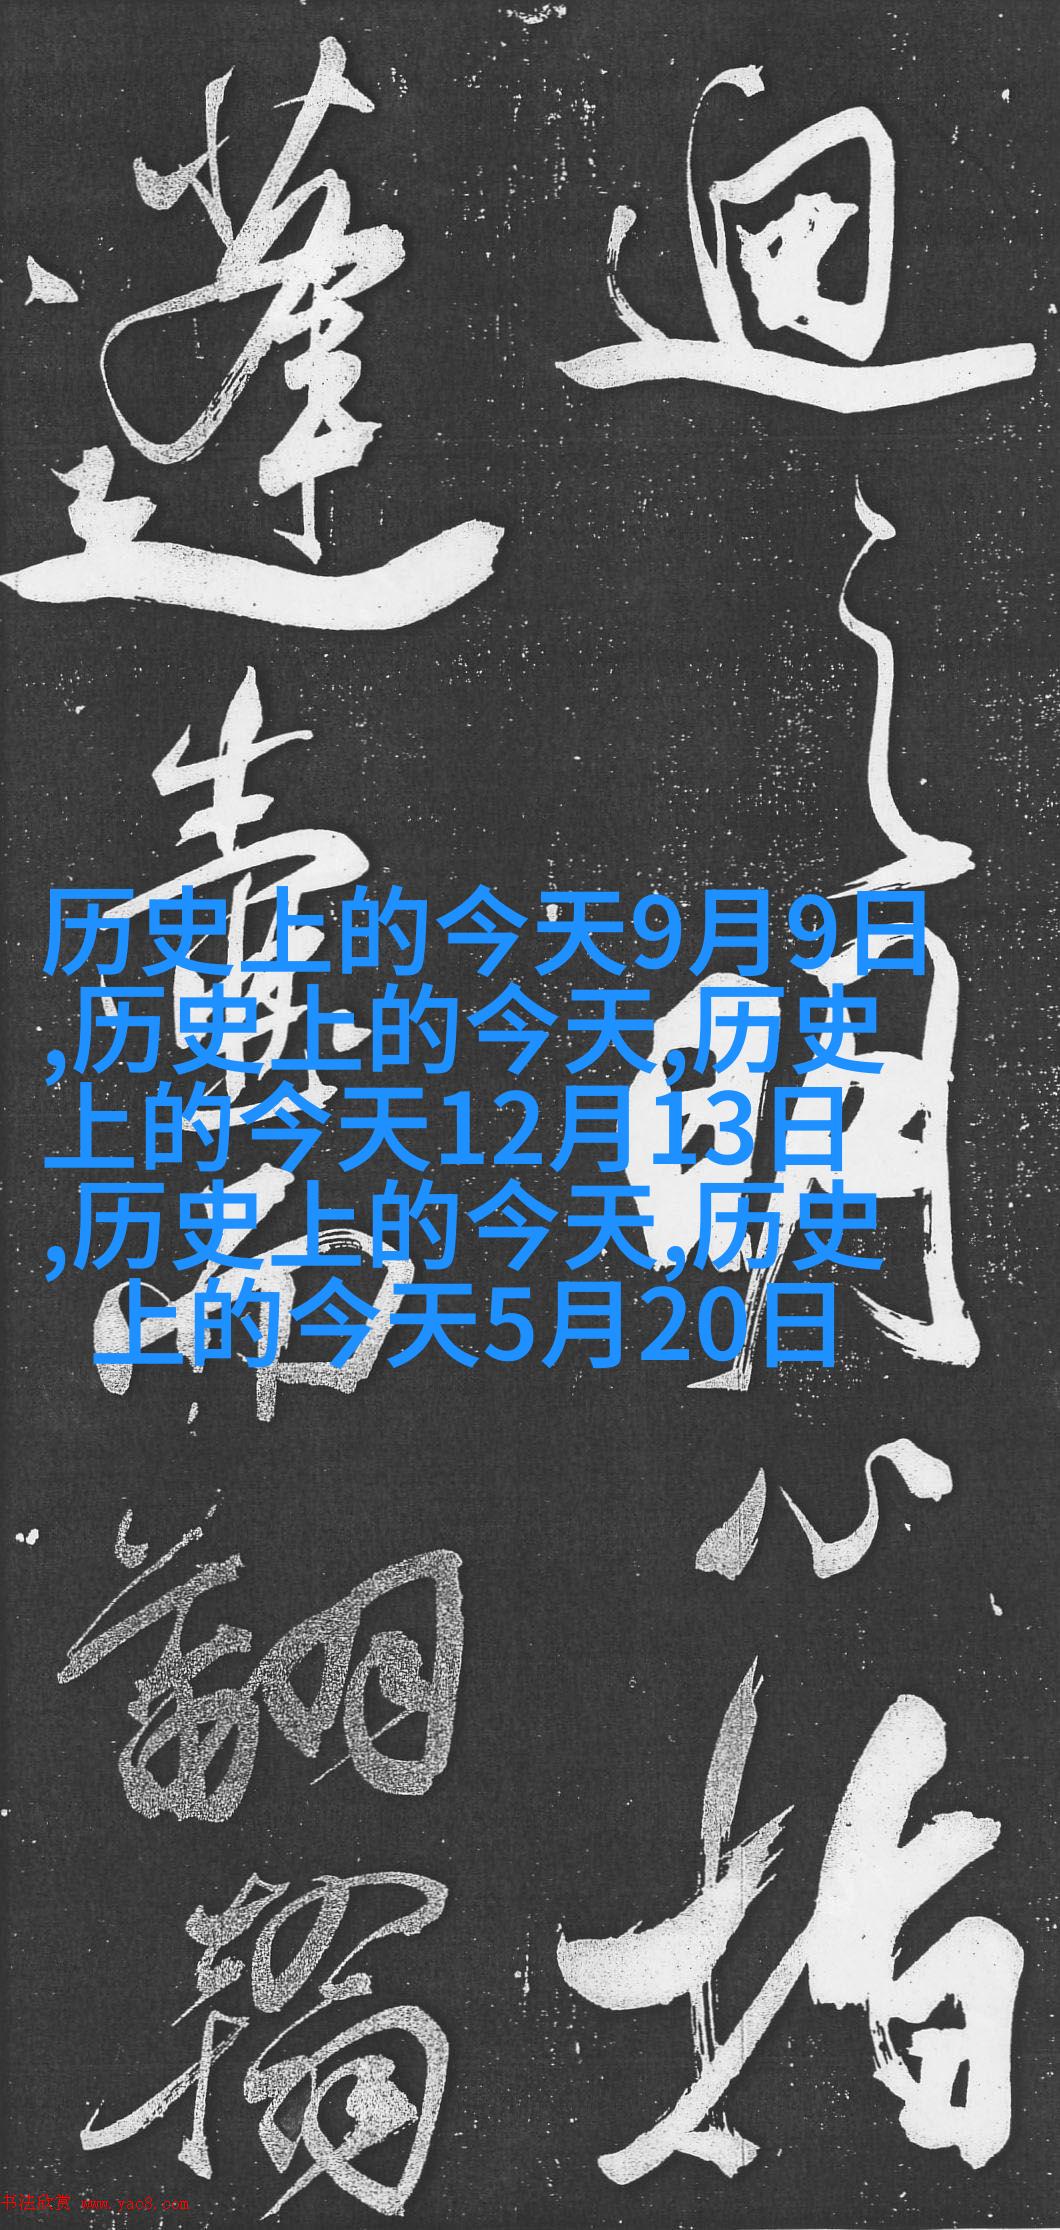 迴之明心指
蓬壺而翻翰
历史上的今天9月9日
,历史上的今天,历史
上的今天12月13日
,历史上的今天,历史
上的今天5月20日
书法欣赏 www.yac8.com